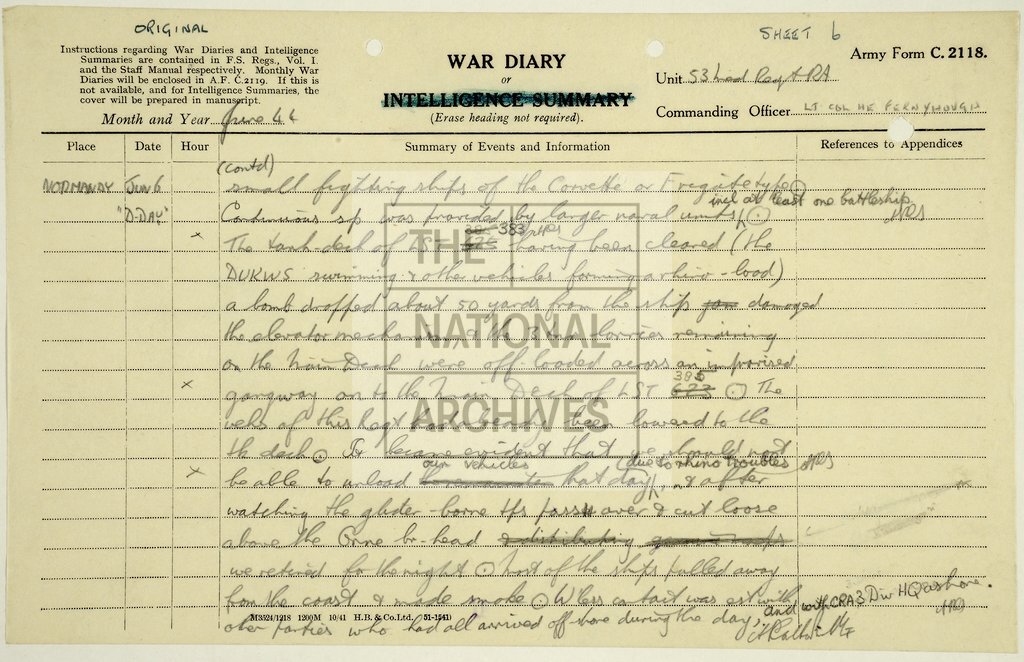 ORIGINAL
SHEET 6
Instructions regarding War Diaries and Intelligence
Summaries are contained in F.S. Regs., Vol. I.
and the Staff Manual respectively. Monthly War
Diaries will be enclosed in A.F. C.2119. If this is
not available, and for Intelligence Summaries, the
cover will be prepared in manuscript.
Month and Year June 44
WAR DIARY
or
INTELLIGENCE SUMMARY
(Erase heading not required).
Army Form C. 2118.
Unit 53 Med Regt RA
Commanding Officer LT COL HE FERNYHOUGH
Place Date Hour Summary of Events and Information References to Appendices
(contd)
NORMANDY JUN 6 small fighting ships of the Corvette or Frigate type
incl at least one battleship
"D-DAY" Continuous sp was provided by larger naval units
383
x The tank deck of having been cleared (the
DUKWS swimming & other vehicles forming a rhino-load)
a bomb dropped about 50 yards from the ship damaged
the elevator mechanism & the carrier remaining
on the Main Deck were off-loaded across an improvised
385
x gangway on to the Main Deck of LST 623 The
vehs of this Regt had been lowered to the
tk deck It became evident that we should not
our vehicles (due to rhino troubles
x be able to unload that day, & after
watching the glider-borne tps pass over & cut loose
above the Orne br-head & distributing
we retired for the night Most of the ships pulled away
from the coast & made smoke Wless contact was est with
and with CRA 3 Div HQ ashore.
other parties who had all arrived off-shore during the day,
M3524/1218 1200M 10/41 H.B. & Co.Ltd. 51-1541)
THE
NATIONAL
ARCHIVES